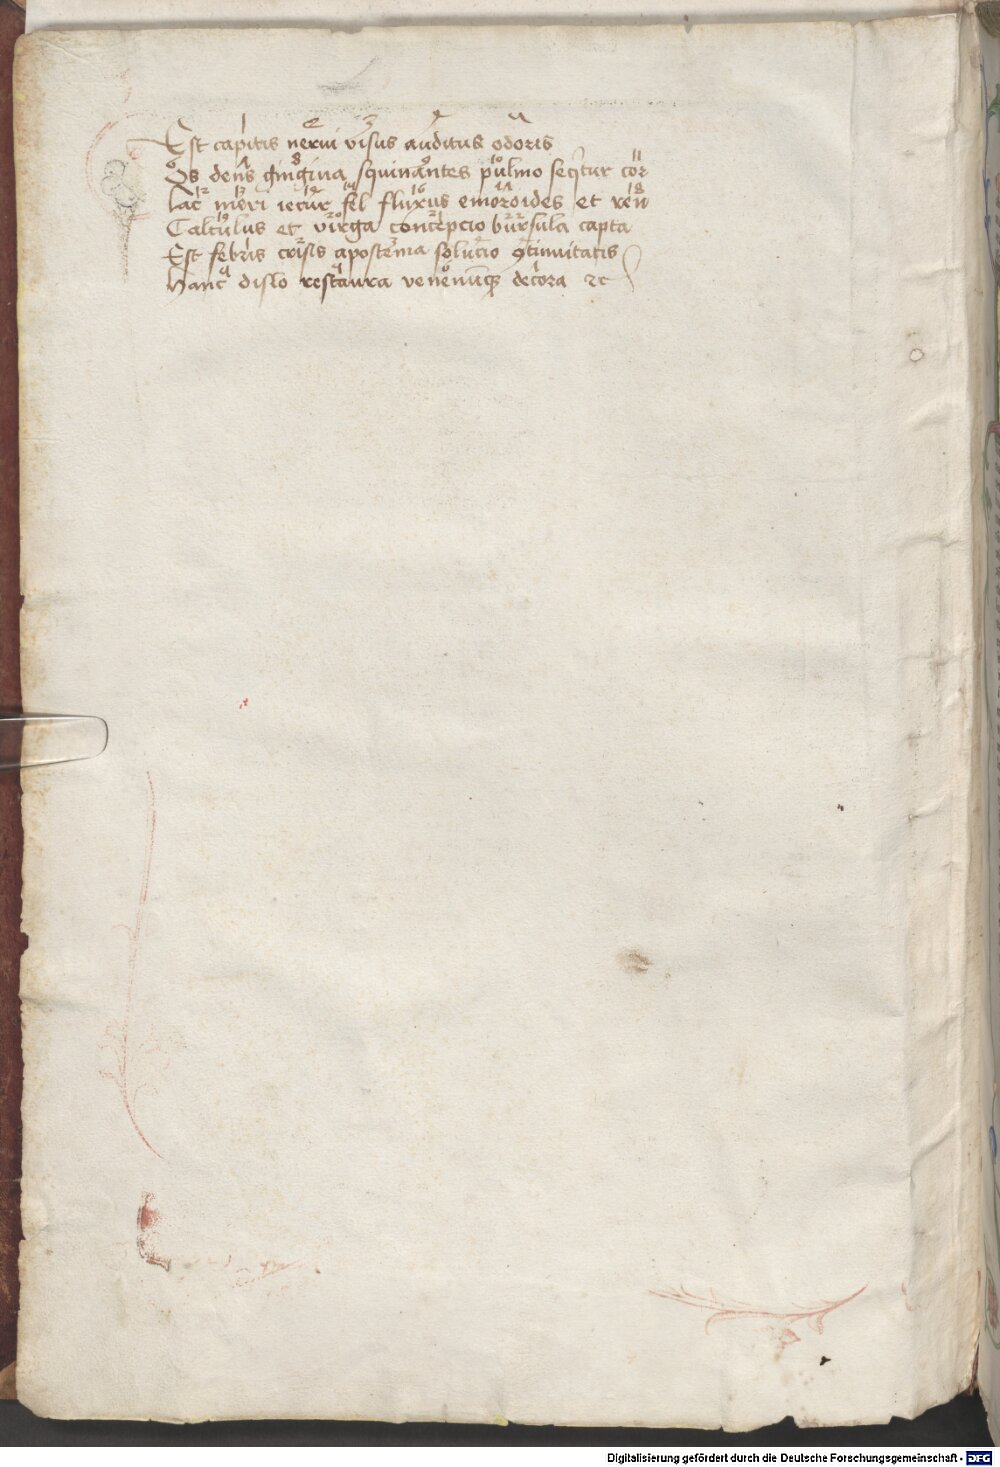 Est capitis nerui visus auditus odoris
Os dens gingiua squinantes pulmo seqitur cor
lac meri iecur fel fluxus emoroides et ren
Calculus et virga concepcio bursula capta
Est febris crisis apostema solucio 9tinuitatis
Hanc dislo restaura venenumque decora 2c
Digitalisierung gefördert durch die Deutsche Forschungsgemeinschaft - DFG